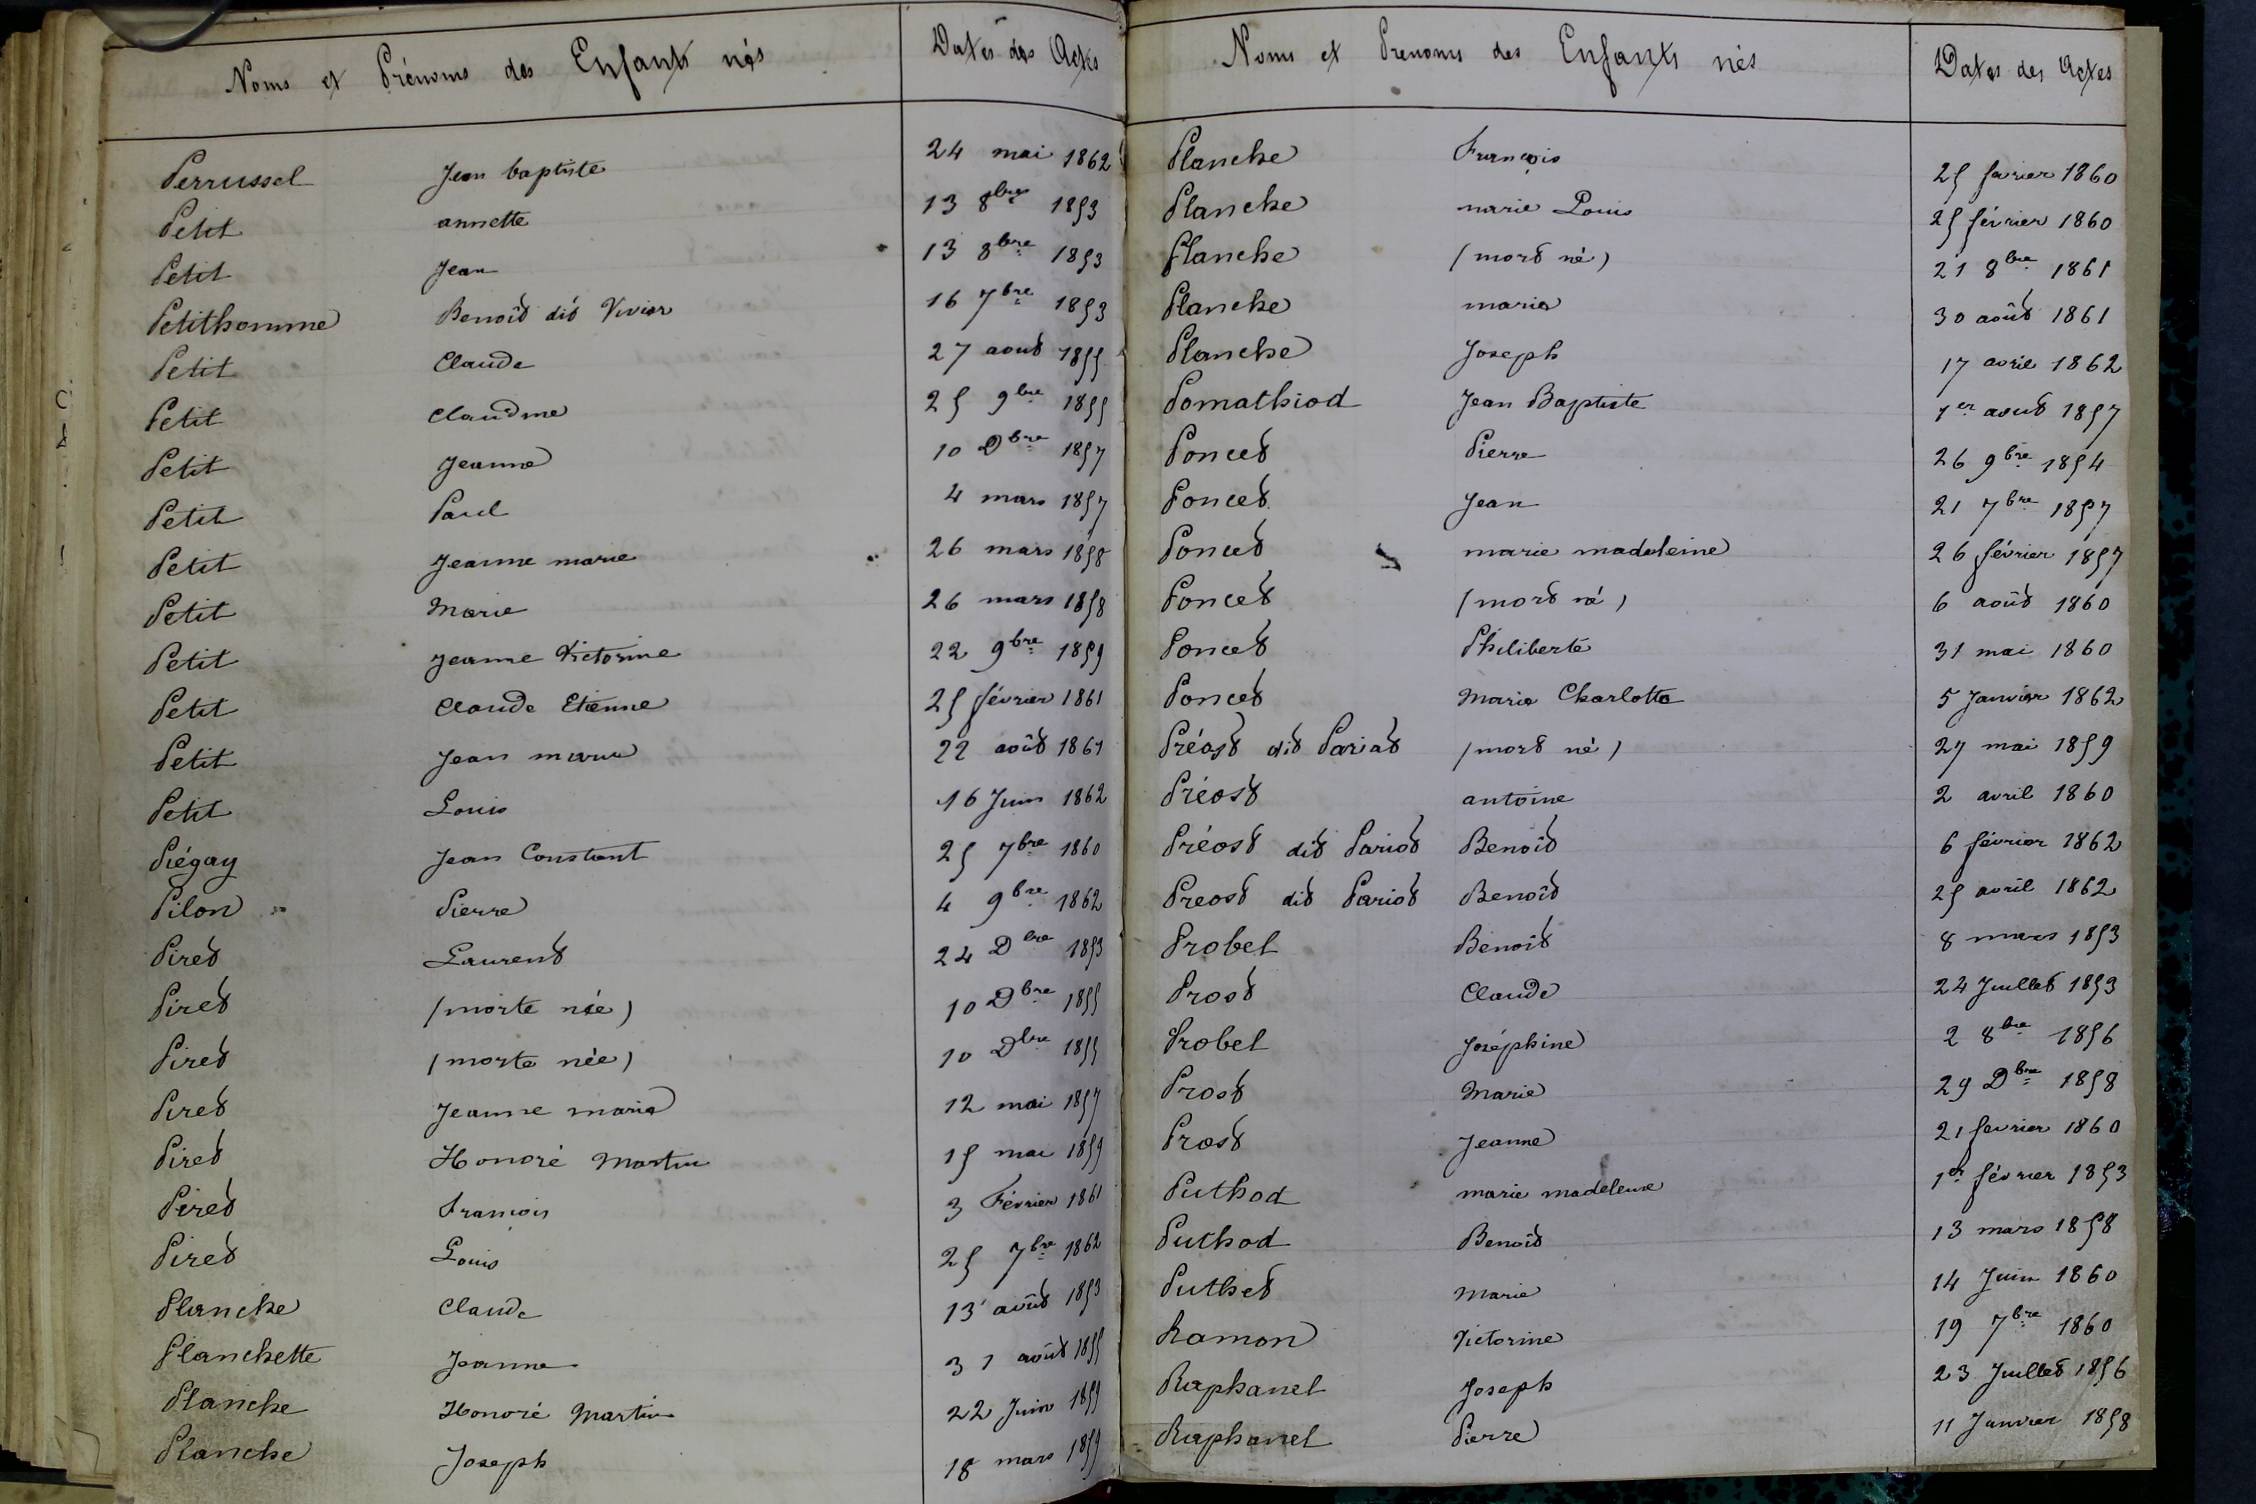 Noms et Prénoms des Enfants nés Dates des Actes
Perrussel Jean baptiste 24 mai 1862
Petit annette 13 8bre 1853
Petit Jean 13 8bre 1853
Petithomme Benoît dit Vivier 16 7bre 1853
Petit Claude 27 aout 1855
Petit Claudine 25 9bre 1855
Petit Jeanne 10 Dbre 1857
Petit Paul 4 mars 1857
Petit Jeanne marie 26 mars 1858
Petit Marie 26 mars 1858
Petit Jeanne Victorine 22 9bre 1859
Petit Claude Etienne 25 février 1861
Petit Jean marie 22 août 1861
Petit Louis 16 Juin 1862
Piégay Jean Constant 25 7bre 1860
Pilon Pierre 4 9bre 1862
Piret Laurent 24 Dbre 1853
Piret (morte née) 10 Dbre 1855
Piret (morte née) 10 Dbre 1855
Piret Jeanne marie 12 mai 1857
Piret Honoré Martin 15 mai 1859
Piret François 3 Février 1861
Piret Louis 25 7bre 1862
Planche Claude 13 août 1853
Planchette Jeanne 31 août 1855
Planche Honoré Martin 22 Juin 1859
Planche Joseph 18 mars 1859
Noms et Prenoms des Enfants nés Dates des Actes
Planche François 25 fevrier 1860
Planche marie Louis 25 février 1860
Planche (mort né) 21 8bre 1861
Planche marie 30 août 1861
Planche Joseph 17 avril 1862
Pomathiod Jean Baptiste 1er aout 1857
Poncet Pierre 26 9bre 1854
Poncet Jean 21 7bre 1857
Poncet marie madeleine 26 février 1857
Poncet (mort né) 6 août 1860
Poncet Philiberte 31 mai 1860
Poncet Marie Charlotte 5 Janvier 1862
Préost dit Pariat (mort né) 27 mai 1859
Préost antoine 2 avril 1860
Préost dit Pariot Benoît 6 février 1862
Preost dit Pariot Benoît 25 avril 1862
Probel Benoît 8 mars 1853
Prost Claude 24 Juillet 1853
Probel Joséphine 2 8bre 1856
Prost Marie 29 Dbre 1858
Prost Jeanne 21 fevrier 1860
Puthod marie madeleine 1er février 1853
Puthod Benoît 13 mars 1858
Puthet Marie 14 Juin 1860
Ramon Victorine 19 7bre 1860
Raphanel Joseph 23 Juillet 1856
Raphanel Pierre 11 Janvier 1858